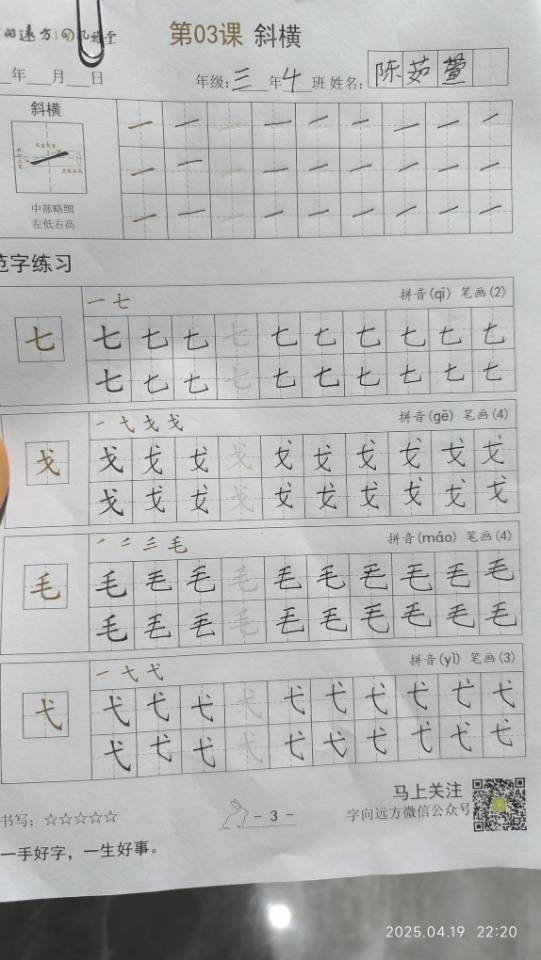 第03课 斜横
年 月 日
年级: 三 年 4 班 姓名: 陈茹萱
斜横
中部略细
左低右高
范字练习
一 七 拼音(qī) 笔画(2)
七 七 七 七 七 七 七 七 七 七 七
七 七 七 七 七 七 七 七 七 七
拼音(gē) 笔画(4)
戈 戈 戈 戈 戈 戈 戈 戈 戈 戈 戈
戈 戈 戈 戈 戈 戈 戈 戈 戈 戈
毛 拼音(máo) 笔画(4)
毛 毛 毛 毛 毛 毛 毛 毛 毛 毛 毛
毛 毛 毛 毛 毛 毛 毛 毛 毛 毛
一 弋 弋 拼音(yì) 笔画(3)
弋 弋 弋 弋 弋 弋 弋 弋 弋 弋 弋
弋 弋 弋 弋 弋 弋 弋 弋 弋 弋
书写: ☆☆☆☆☆
- 3 -
马上关注
字问远方微信公众号
一手好字，一生好事。
2025.04.19 22:20